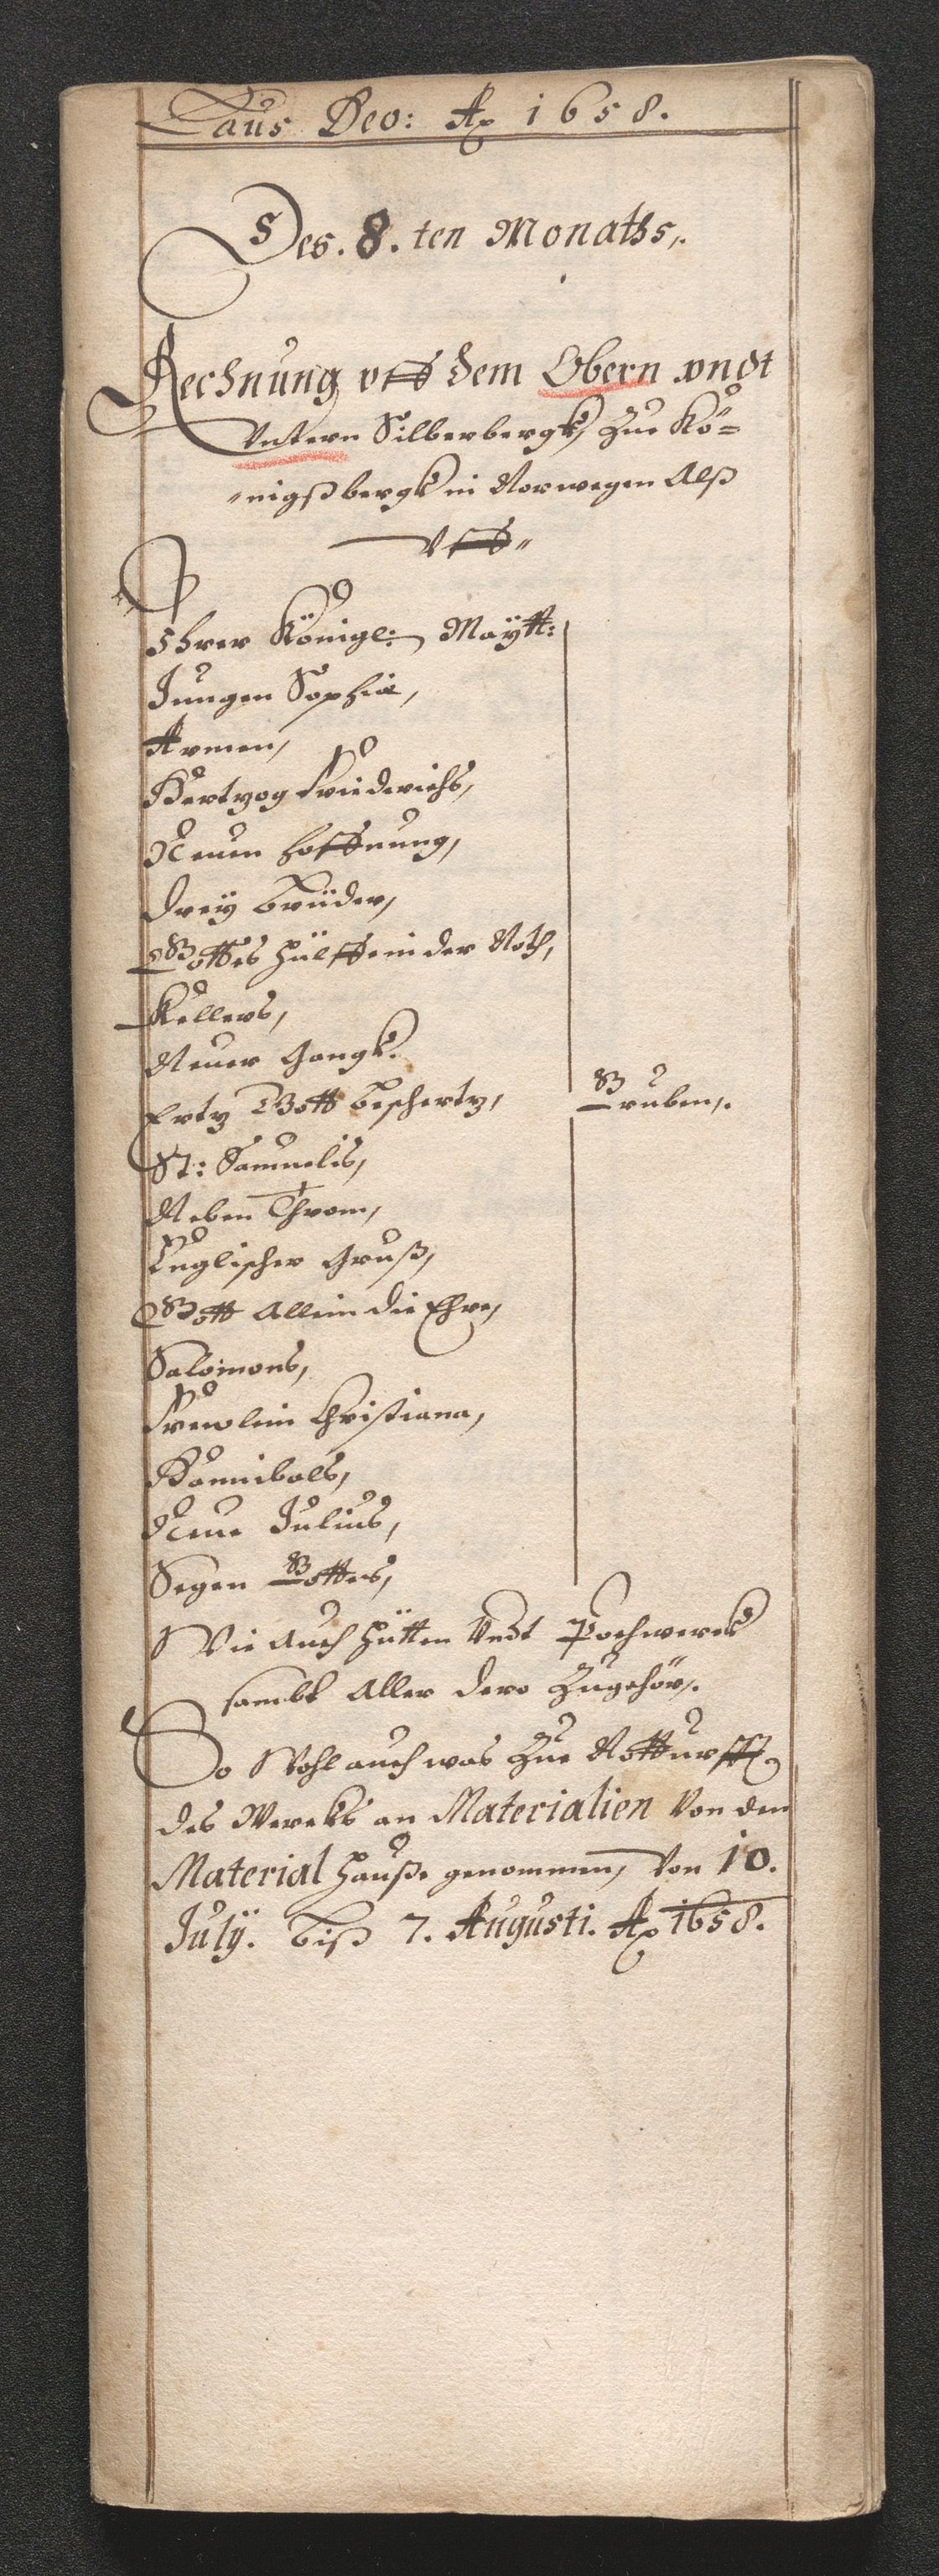 Laus Deo: Ao 1658.
Des. 8. ten Monaths,.
Rechnung vff dem Obern vndt
Vntern Silberbergk, Zue Kö=
nigßbergk in Norwegen Alß
vff
Ihrer Königl: Maÿtt:
Jungen Sophiæ,
Armen,
Hertzog Friederichs,
Neuen hoffnung,
Dreÿ Brüder,
Gottes Hülffe in der Noth,
Kellers,
Neuer Gangk.
Ertz Gott bescherts,
Gruben,.
St: Samuelis,
Neben Throm,
Englischer Gruß,
Gott Allein die Ehre,
Salomons,
Frewlein Christiana,
Hannibals,
Neue Julius,
Segen Gottes,
Wie Auch Hütten Vndt Pochwerck
sambt Aller dero Zugehör,.
So Wohl auch was Zue Notturfft
des Wercks an Materialien Von dem
Material Hauße genommen, Von 10.
Julÿ. biß 7. Augusti. Ao 1658.